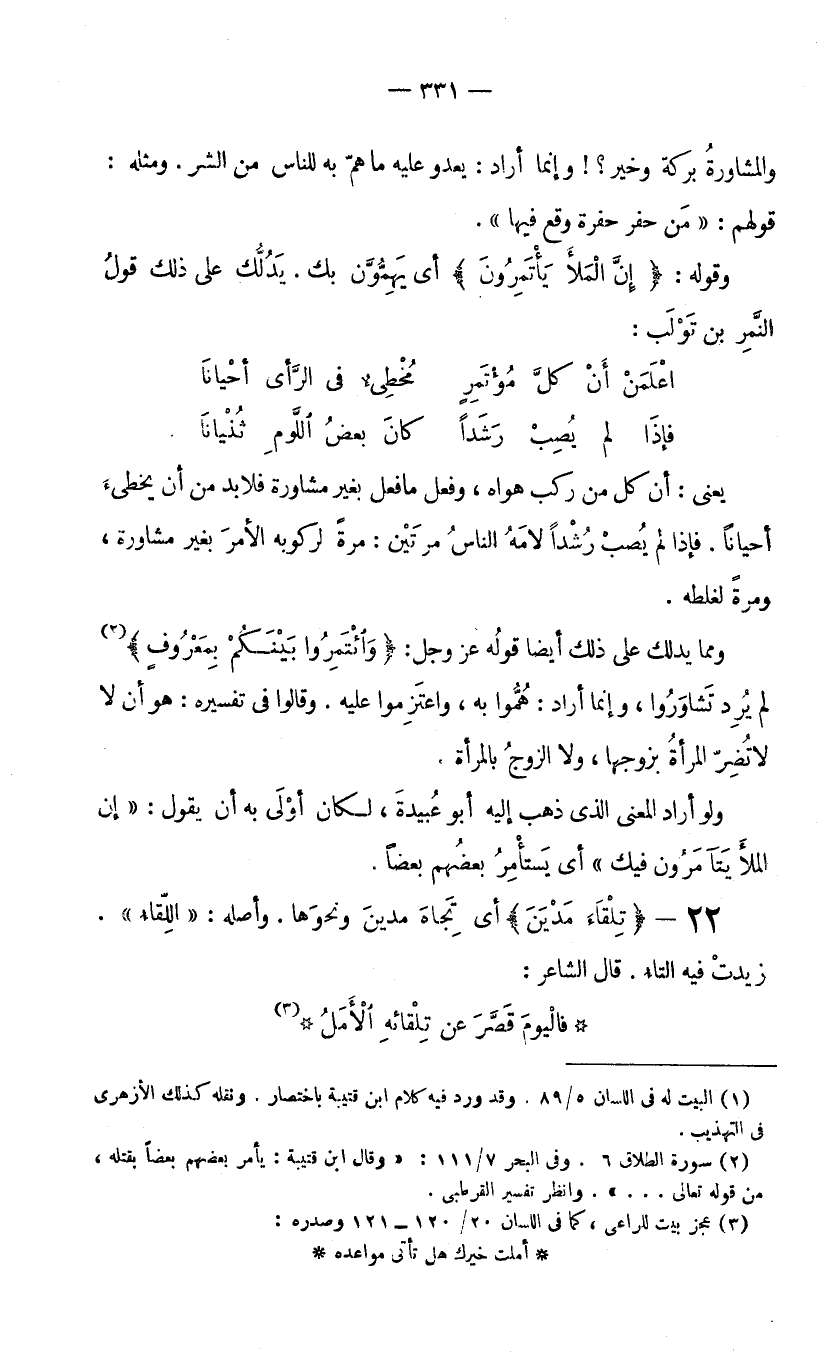 — ٣٣١ —
والمشاورةُ بركة وخير؟! وإنما أراد: يعدو عليه ما همّ به للناس من الشر. ومثله:
قولهم: «مَن حفر حفرة وقع فيها».
وقوله: ﴿إِنَّ الْمَلَأَ يَأْتَمِرُونَ﴾ أى يَهِمُّون بك. يَدُلُّك على ذلك قولُ
النَّمرِ بن تَوْلَب:
اعْلَمَنْ أَنْ كلَّ مُؤْتَمِرٍ مُخْطِىء فى الرَّأى أحْيانَا
فإذَا لم يُصِبْ رَشَداً كانَ بعضُ ٱللَّومِ ثُنْيانَا .
يعنى: أن كل من ركب هواه، وفعل مافعل بغير مشاورة فلابد من أن يخطىءَ
أحياناً. فإذا لم يُصبْ رُشْداً لامَهُ الناسُ مرتَيْن: مرةً لركوبه الأمرَ بغير مشاورة،
ومرةً لغلطه.
ومما يدلك على ذلك أيضا قولُه عز وجل: ﴿وَأْتَمِرُوا بَيْنَكُمْ بِمَعْرُوفٍ﴾(٢)
لم يُرِد تَشاوَرُوا، وإنما أراد: هُمُّوا به، واعتَزِموا عليه. وقالوا فى تفسيره: هو أن لا
لاتُضِرّ المرأةُ بزوجها، ولا الزوجُ بالمرأة.
ولو أراد المعنى الذى ذهب إليه أبو عُبيدةَ، لكان أوْلَى به أن يقول: «إن
الملأَ يَتَآمَرُون فيك» أى يَستأْمِرُ بعضُهم بعضاً.
٢٢ — ﴿تِلْقَاءَ مَدْيَنَ﴾ أى تِجَاهَ مدينَ ونحوَها. وأصله: «اللِّقاء».
زيدتْ فيه التاء. قال الشاعر:
* فالْيومَ قَصَّرَ عن تِلقائهِ ٱلْأَمَلُ *(٣)
(١) البيت له فى اللسان ٥/ ٨٩. وقد ورد فيه كلام ابن قتيبة باختصار. ونقله كذلك الأزهرى
فى التهذيب.
(٢) سورة الطلاق ٦. وفى البحر ٧/ ١١١: «وقال ابن قتيبة: يأمر بعضهم بعضاً بقتله،
من قوله تعالى...». وانظر تفسير القرطبى.
(٣) عجز بيت للراعى، كما فى اللسان ٢٠/ ١٢٠ — ١٢١ وصدره:
* أملت خيرك هل تأتى مواعده *